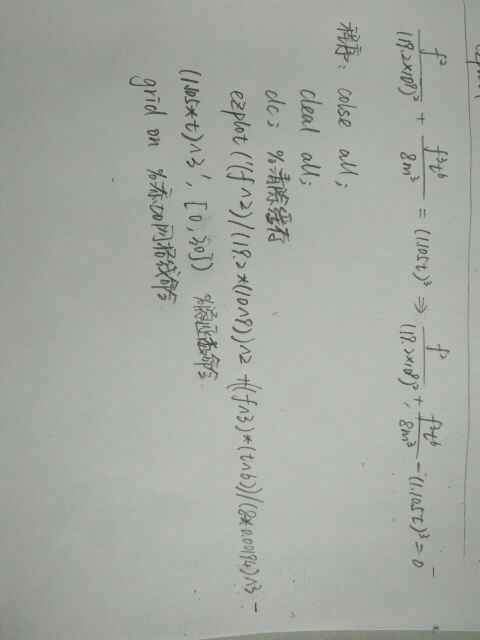 f²/(18.2×10⁸)² + f³t⁶/8m³ = (1.105t)³ ⇒ f²/(18.2×10⁸)² + f³t⁶/8m³ - (1.105t)³ = 0
程序: colse all;
cleal all;
clc; %清除缓存
ezplot('(f^2)/(18.2*(10^8))^2+((f^3)*(t^6))/(8*0.00184)^3-
(1.105*t)^3',[0,30])
grid on %添加网格线命令